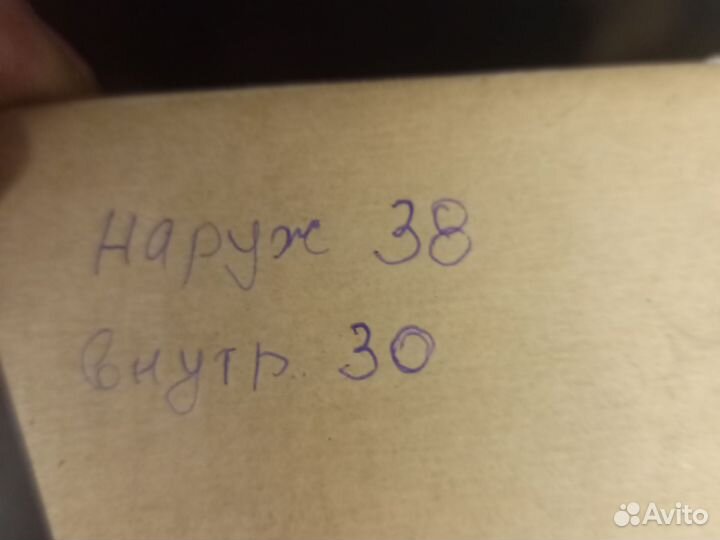 наруж 38
внутр. 30
Avito